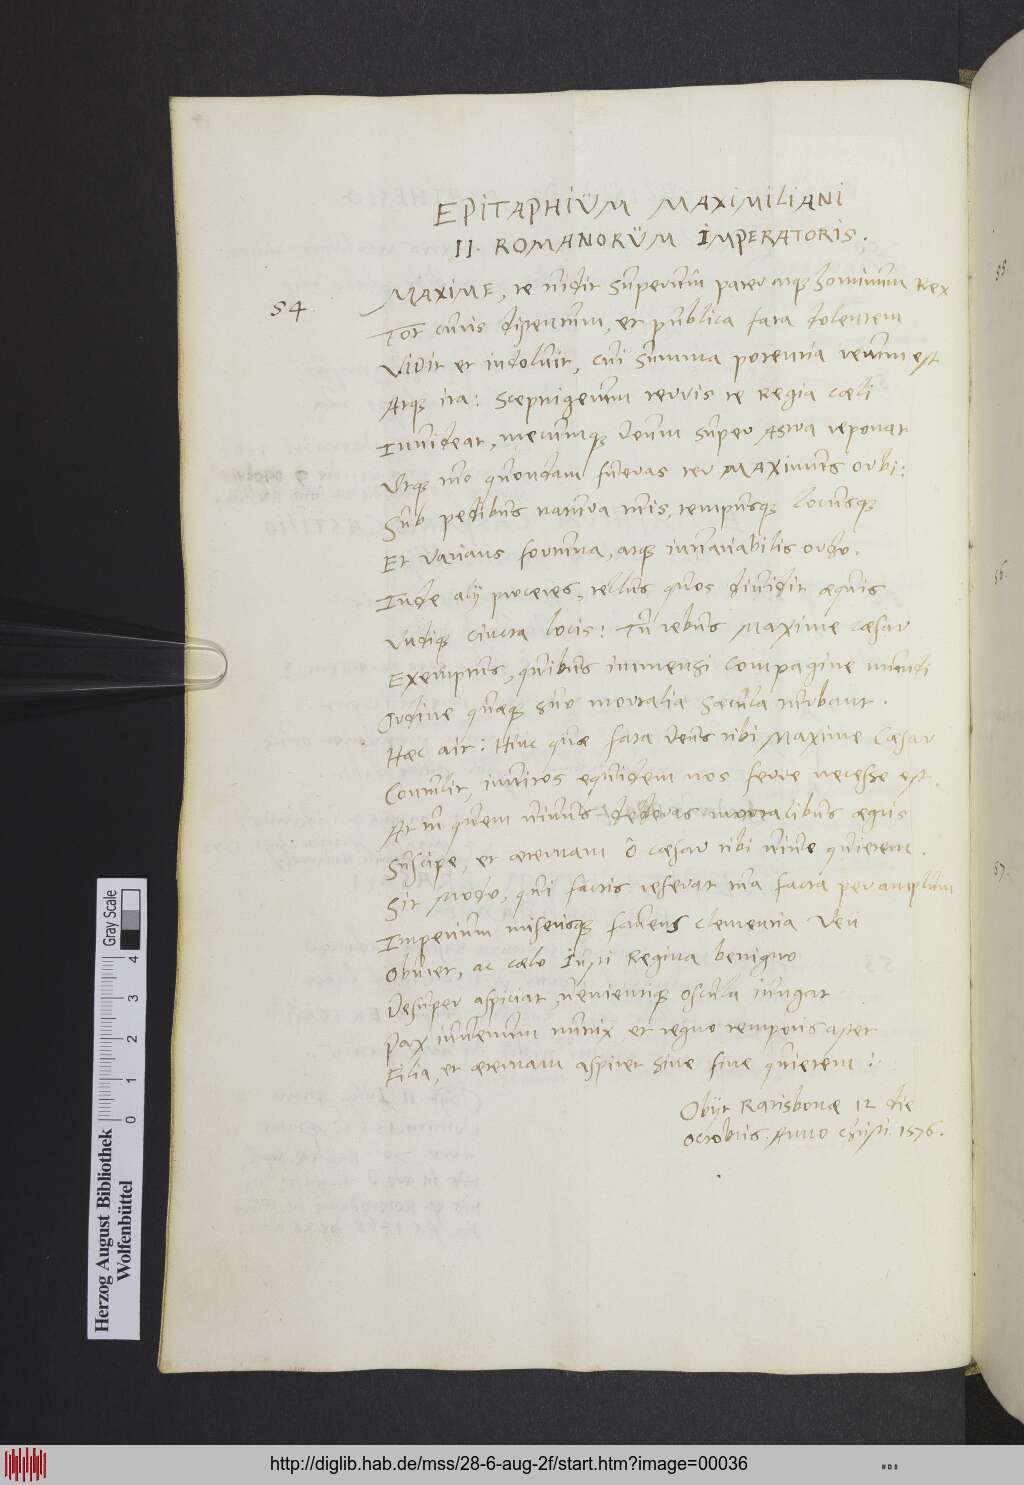 EPITAPHIÜM MAXIMILIANI
II. ROMANORÜM IMPERATORIS.
54.
MAXIME, te uidit Superum pater atq hominum Rex
Tot curis disentum, et publica fata dolentem
VIDIT et indoluit, cui summa potentia rerum est
Atq ita: Sceptrigerum terris te Regia cæli
Inuideat, mecumq Deum super Astra reponat
Utq mo quondam fueras ter MAXimus orbi:
Sub pedibus natura tuis, tempusq locusq
Et varians fortuna, atq inuariabilis ordo.
Inde alij proceres, tellus quos diuidit æquis
Undiq cincta locis: Tu rebus Maxime cæsar
Exemptus, quibus immensi compagine mundi
Ordine quæq suo mortalia sæcula turbant.
Hæc ait: Hinc quæ fata Deus tibi Maxime Cæsar
Contulit, inuitos equidem nos ferre necesse est.
At tu quem uiuus dederas mortalibus ægris
Suscipe, et æternam ô cæsar tibi uiue quietem.
Sit modo, qui factis reserat tua facta per amplum
Imperium miserisq fauens clementia Deu
Obuiet, ac cælo Regina benigno
Desuper aspiciat, uenientiq oscula iungat
Pax iuuenum nutrix et regno temporis aster
Filia, et æternam aspiret sine fine quietem:
Obijt Ratisbonæ 12 die
octobris. Anno christi. 1576.
55.
56.
57.
Herzog August Bibliothek
Wolfenbüttel
Gray Scale
0 1 2 3 4
http://diglib.hab.de/mss/28-6-aug-2f/start.htm?image=00036